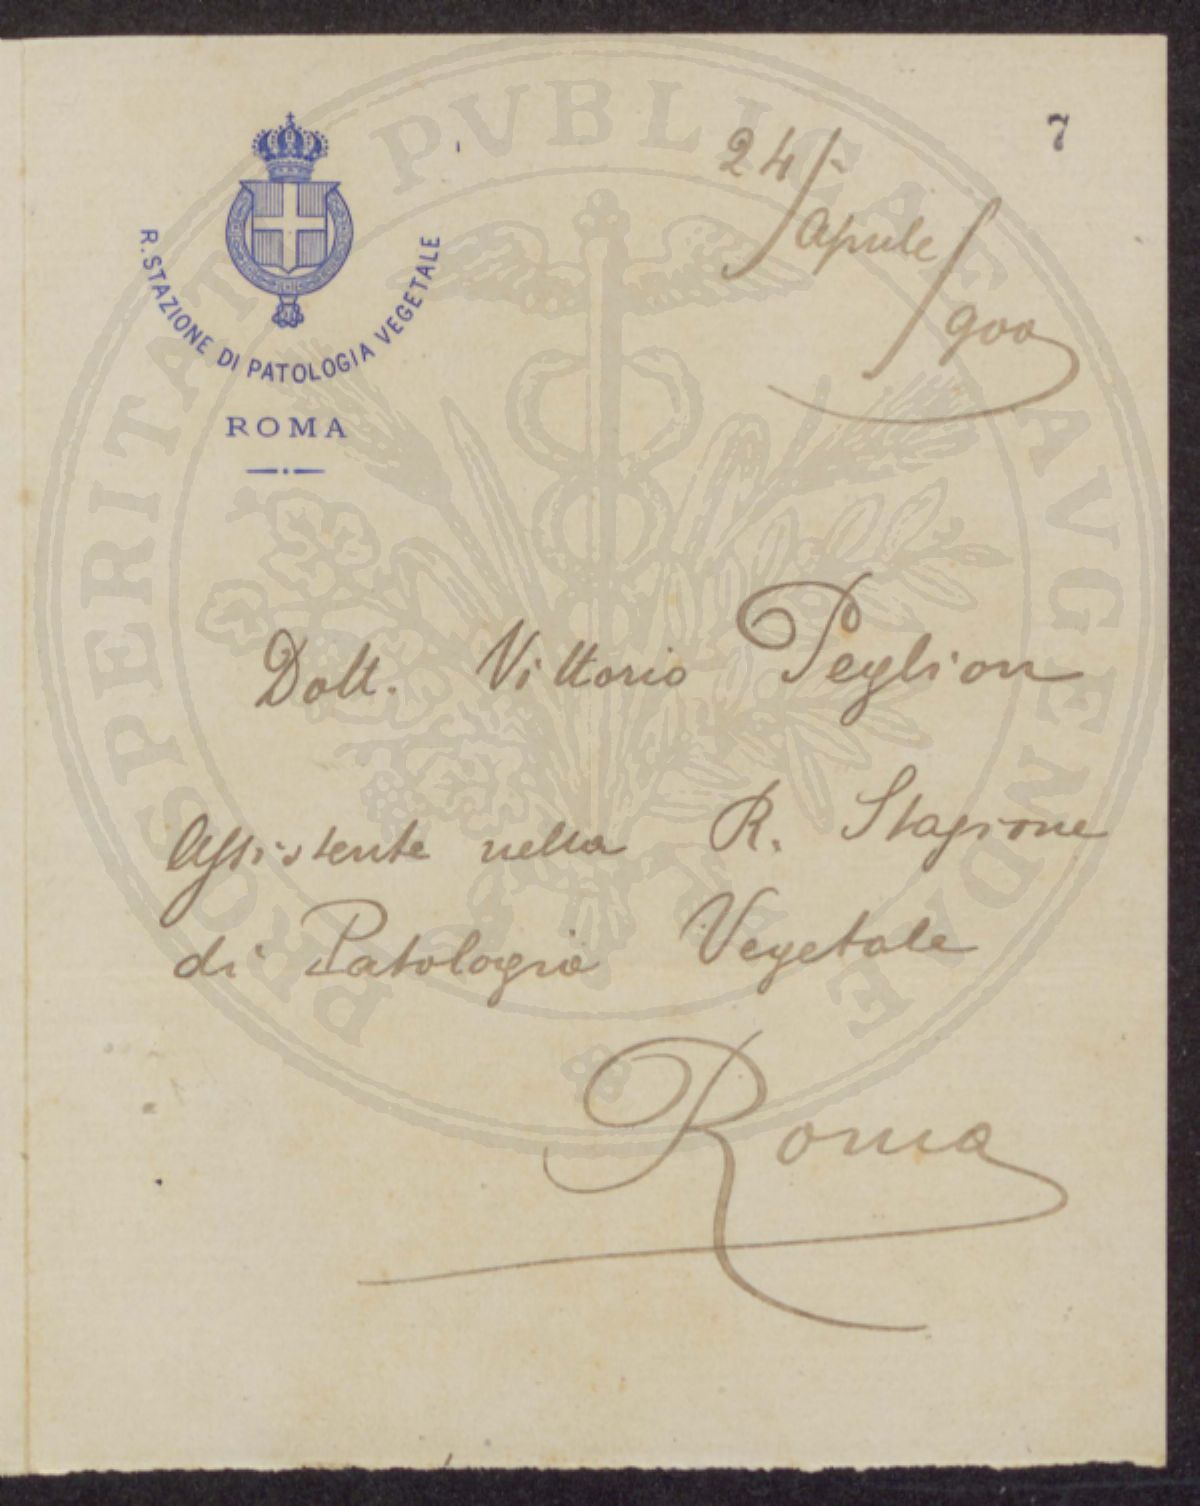 7
24/
Aprile/
900
R. STAZIONE DI PATOLOGIA VEGETALE
ROMA
Dott. Vittorio Peglion
Assistente nella R. Stazione
di Patologia Vegetale
Roma
PROSPERITATI PVBLICAE AVGENDAE